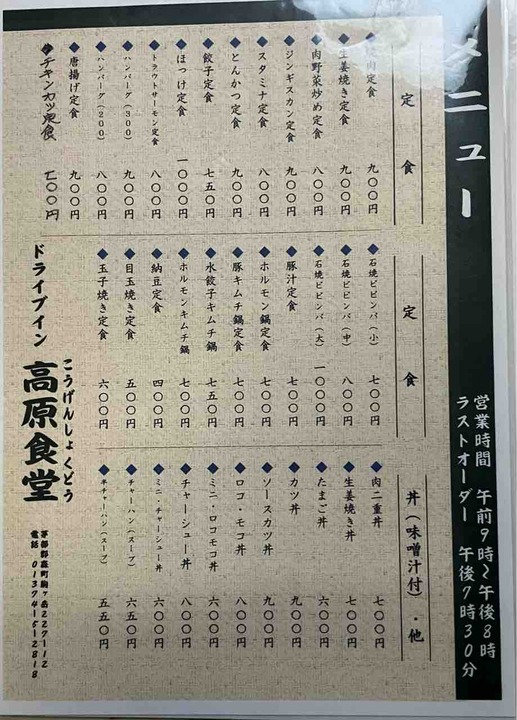 メニュー
営業時間 午前9時~午後8時
ラストオーダー 午後7時30分
定食
焼肉定食 九〇〇円
生姜焼き定食 九〇〇円
肉野菜炒め定食 九〇〇円
ジンギスカン定食 九〇〇円
スタミナ定食 八〇〇円
とんかつ定食 九〇〇円
餃子定食 七五〇円
ほっけ定食 一〇〇〇円
トラウトサーモン定食 八〇〇円
ハンバーグ(300) 九〇〇円
ハンバーグ(200) 八〇〇円
唐揚げ定食 九〇〇円
チキンカツ定食 七〇〇円
定食
石焼ビビンバ(小) 七〇〇円
石焼ビビンバ(中) 八〇〇円
石焼ビビンバ(大) 一〇〇〇円
豚汁定食 七〇〇円
ホルモン鍋定食 七〇〇円
豚キムチ鍋定食 七〇〇円
水餃子キムチ鍋 七五〇円
ホルモンキムチ鍋 七〇〇円
納豆定食 四〇〇円
目玉焼き定食 五〇〇円
玉子焼き定食 六〇〇円
丼(味噌汁付)・他
肉二重丼 七〇〇円
生姜焼き丼 七〇〇円
たまご丼 六〇〇円
カツ丼 九〇〇円
ソースカツ丼 九〇〇円
ロコ・モコ丼 八〇〇円
ミニ・ロコモコ丼 六〇〇円
チャーシュー丼 八〇〇円
ミニ・チャーシュー丼 六〇〇円
チャーハン(スープ) 六五〇円
半チャーハン(スープ) 五五〇円
ドライブイン
こうげんしょくどう
高原食堂
茅部郡森町駒ヶ岳227-12
電話 01374-5-2818